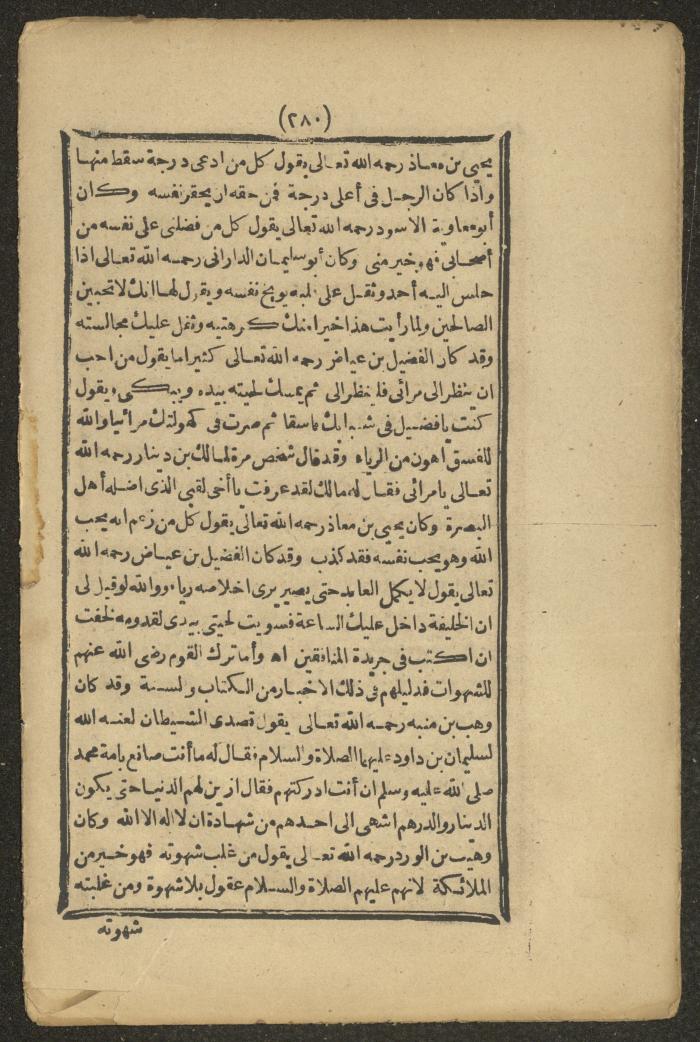 (٢٨٠)
يحيى بن معاذ رحمه الله تعالى يقول كل من ادعى درجة سقط منها
واذا كان الرجل فى أعلى درجة فمن حقه ان يحقر نفسه وكان
أبو معاوية الاسود رحمه الله تعالى يقول كل من فضلنى على نفسه من
أصحابى فهو خير منى وكان أبو سليمان الدارانى رحمه الله تعالى اذا
جلس اليه أحد وثقل على قلبه يوبخ نفسه ويقول لها انك لا تحبين
الصالحين ولما رأيت هذا خيرا منك كرهتيه وثقل عليك مجالسته
وقد كان الفضيل بن عياض رحمه الله تعالى كثيرا ما يقول من احب
ان ينظر الى مرائى فلينظر الى ثم يمسك لحيته بيده ويبكى ويقول
كنت يا فضيل فى شبابك فاسقا ثم صرت فى كهولتك مرائيا والله
للفسق اهون من الرياء وقد قال شخص مرة لمالك بن دينار رحمه الله
تعالى يا مرائى فقال له مالك لقد عرفت يا أخى لقبى الذى اضله أهل
البصرة وكان يحيى بن معاذ رحمه الله تعالى يقول كل من زعم انه يحب
الله وهو يحب نفسه فقد كذب وقد كان الفضيل بن عياض رحمه الله
تعالى يقول لا يكمل العابد حتى يصير يرى اخلاصه رياء ووالله لو قيل لى
ان الخليفة داخل عليك الساعة فسويت لحيتى بيدى لقدومه لخفت
ان اكتب فى جريدة المنافقين اه وأما ترك القوم رضى الله عنهم
للشهوات فدليلهم فى ذلك الاخبار من الكتاب والسنة وقد كان
وهب بن منبه رحمه الله تعالى يقول تصدى الشيطان لعنه الله
لسليمان بن داود عليهما الصلاة والسلام فقال له ما أنت صانع بامة محمد
صلى الله عليه وسلم ان أنت ادركتهم فقال ازين لهم الدنيا حتى يكون
الدينار والدرهم اشهى الى احدهم من شهادة ان لا اله الا الله وكان
وهيب بن الورد رحمه الله تعالى يقول من غلب شهوته فهو خير من
الملائكة لانهم عليهم الصلاة والسلام عقول بلا شهوة ومن غلبته
شهوته